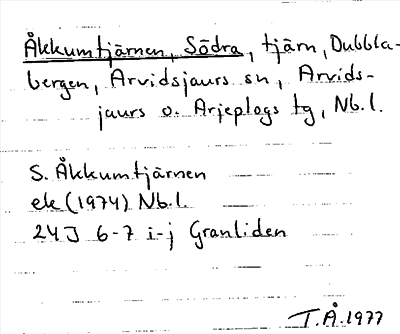 Åkkumtjärnen, Södra, tjärn, Dubbla-
bergen, Arvidsjaurs sn, Arvids-
jaurs o. Arjeplogs tg, Nb.l.
S. Åkkumtjärnen
ek (1974) Nb.l.
24J 6-7 i-j Granliden
T.Å. 1977